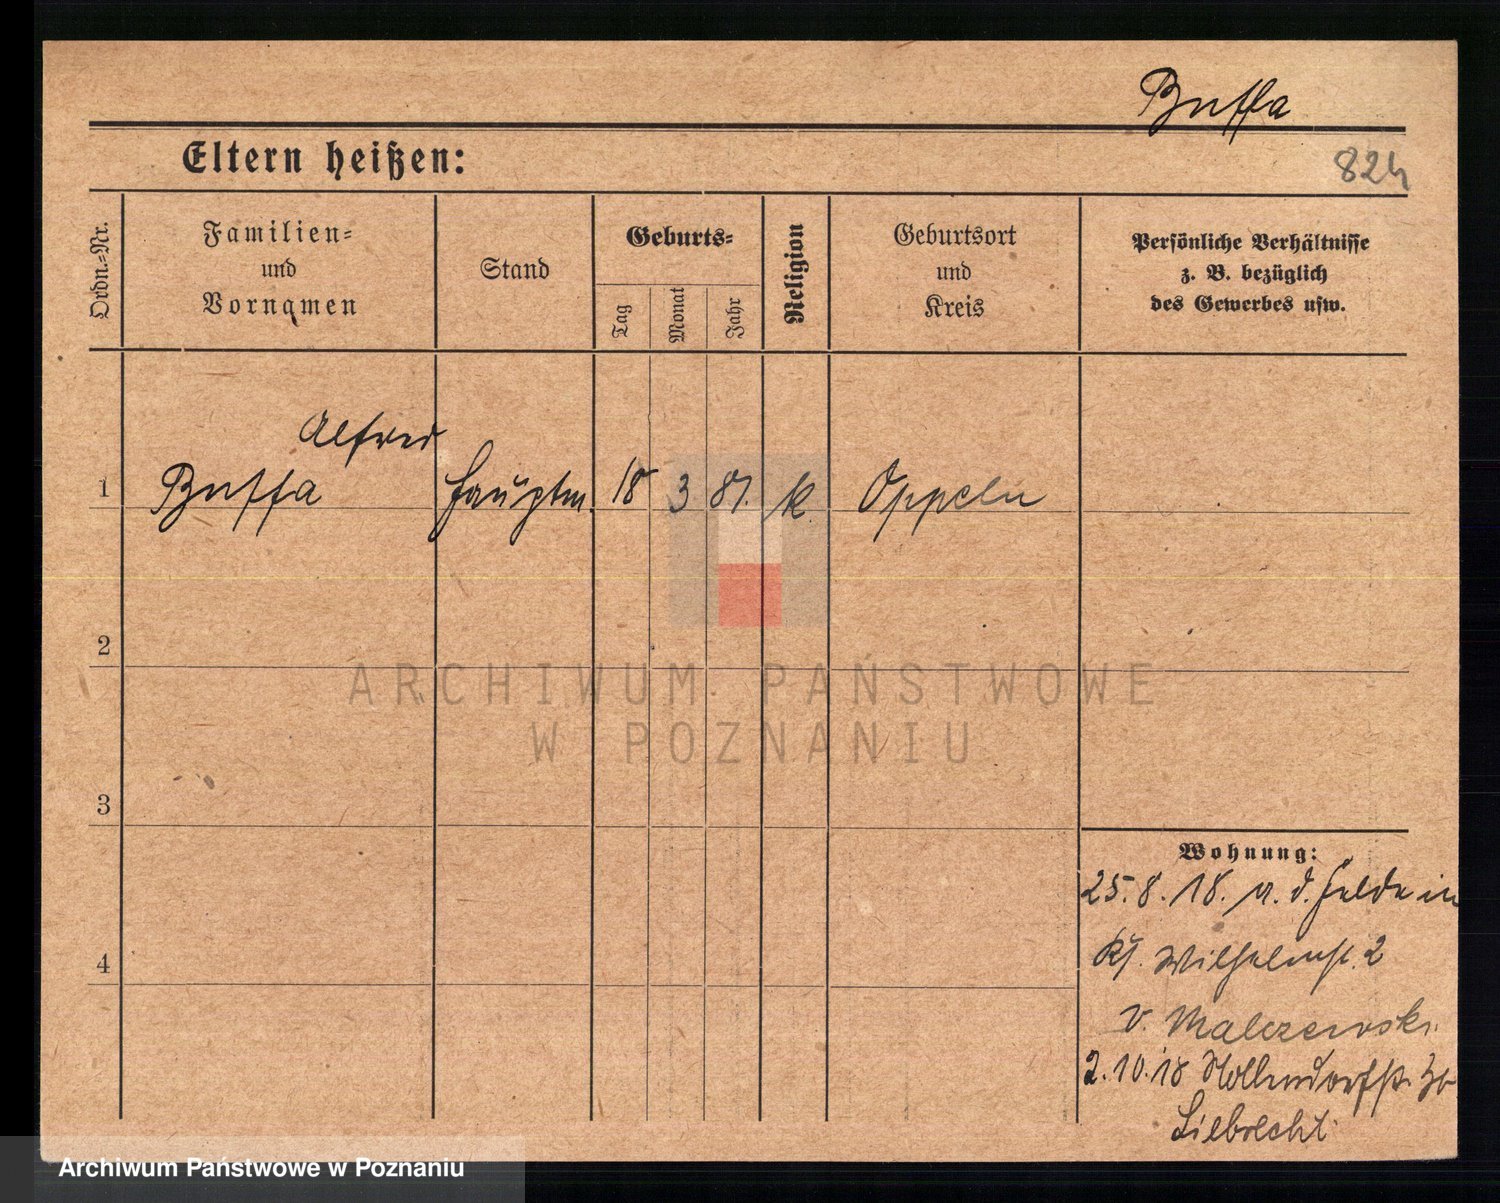 Buffa
Eltern heißen:
824
Ordn.-Nr.
Familien-
und
Vornamen
Stand
Geburts-
Tag
Monat
Jahr
Religion
Geburtsort
und
Kreis
Persönliche Verhältnisse
z. B. bezüglich
des Gewerbes usw.
Alfred
1 Buffa Hauptm. 18 3 81. k Oppeln
2
ARCHIWUM PAŃSTWOWE
W POZNANIU
3
Wohnung:
25. 8. 18. a. d. Felde in
4
Wilhelmst. 2
v. Malczewski
2. 10. 18 Nollendorfst.
Liebrecht
Archiwum Państwowe w Poznaniu